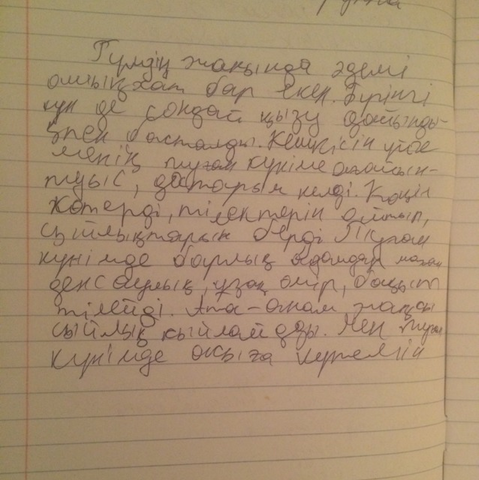 Гүлдің жанында әдемі
ашық хат бар екен. Бүгінгі
күн де сондай қызу дайынды-
қпен басталды. Кешкісін үйге
менің туған күніме ағайын-
туыс, достарым келді. Көңіл
көтерді, тілектерін айтып,
сыйлықтарын берді. Туған
күнімде барлық адамдар маған
денсаулық, ұзақ өмір, бақыт
тілейді. Ата-анам жақсы
сыйлық сыйлайды. Мен туған
күнімде